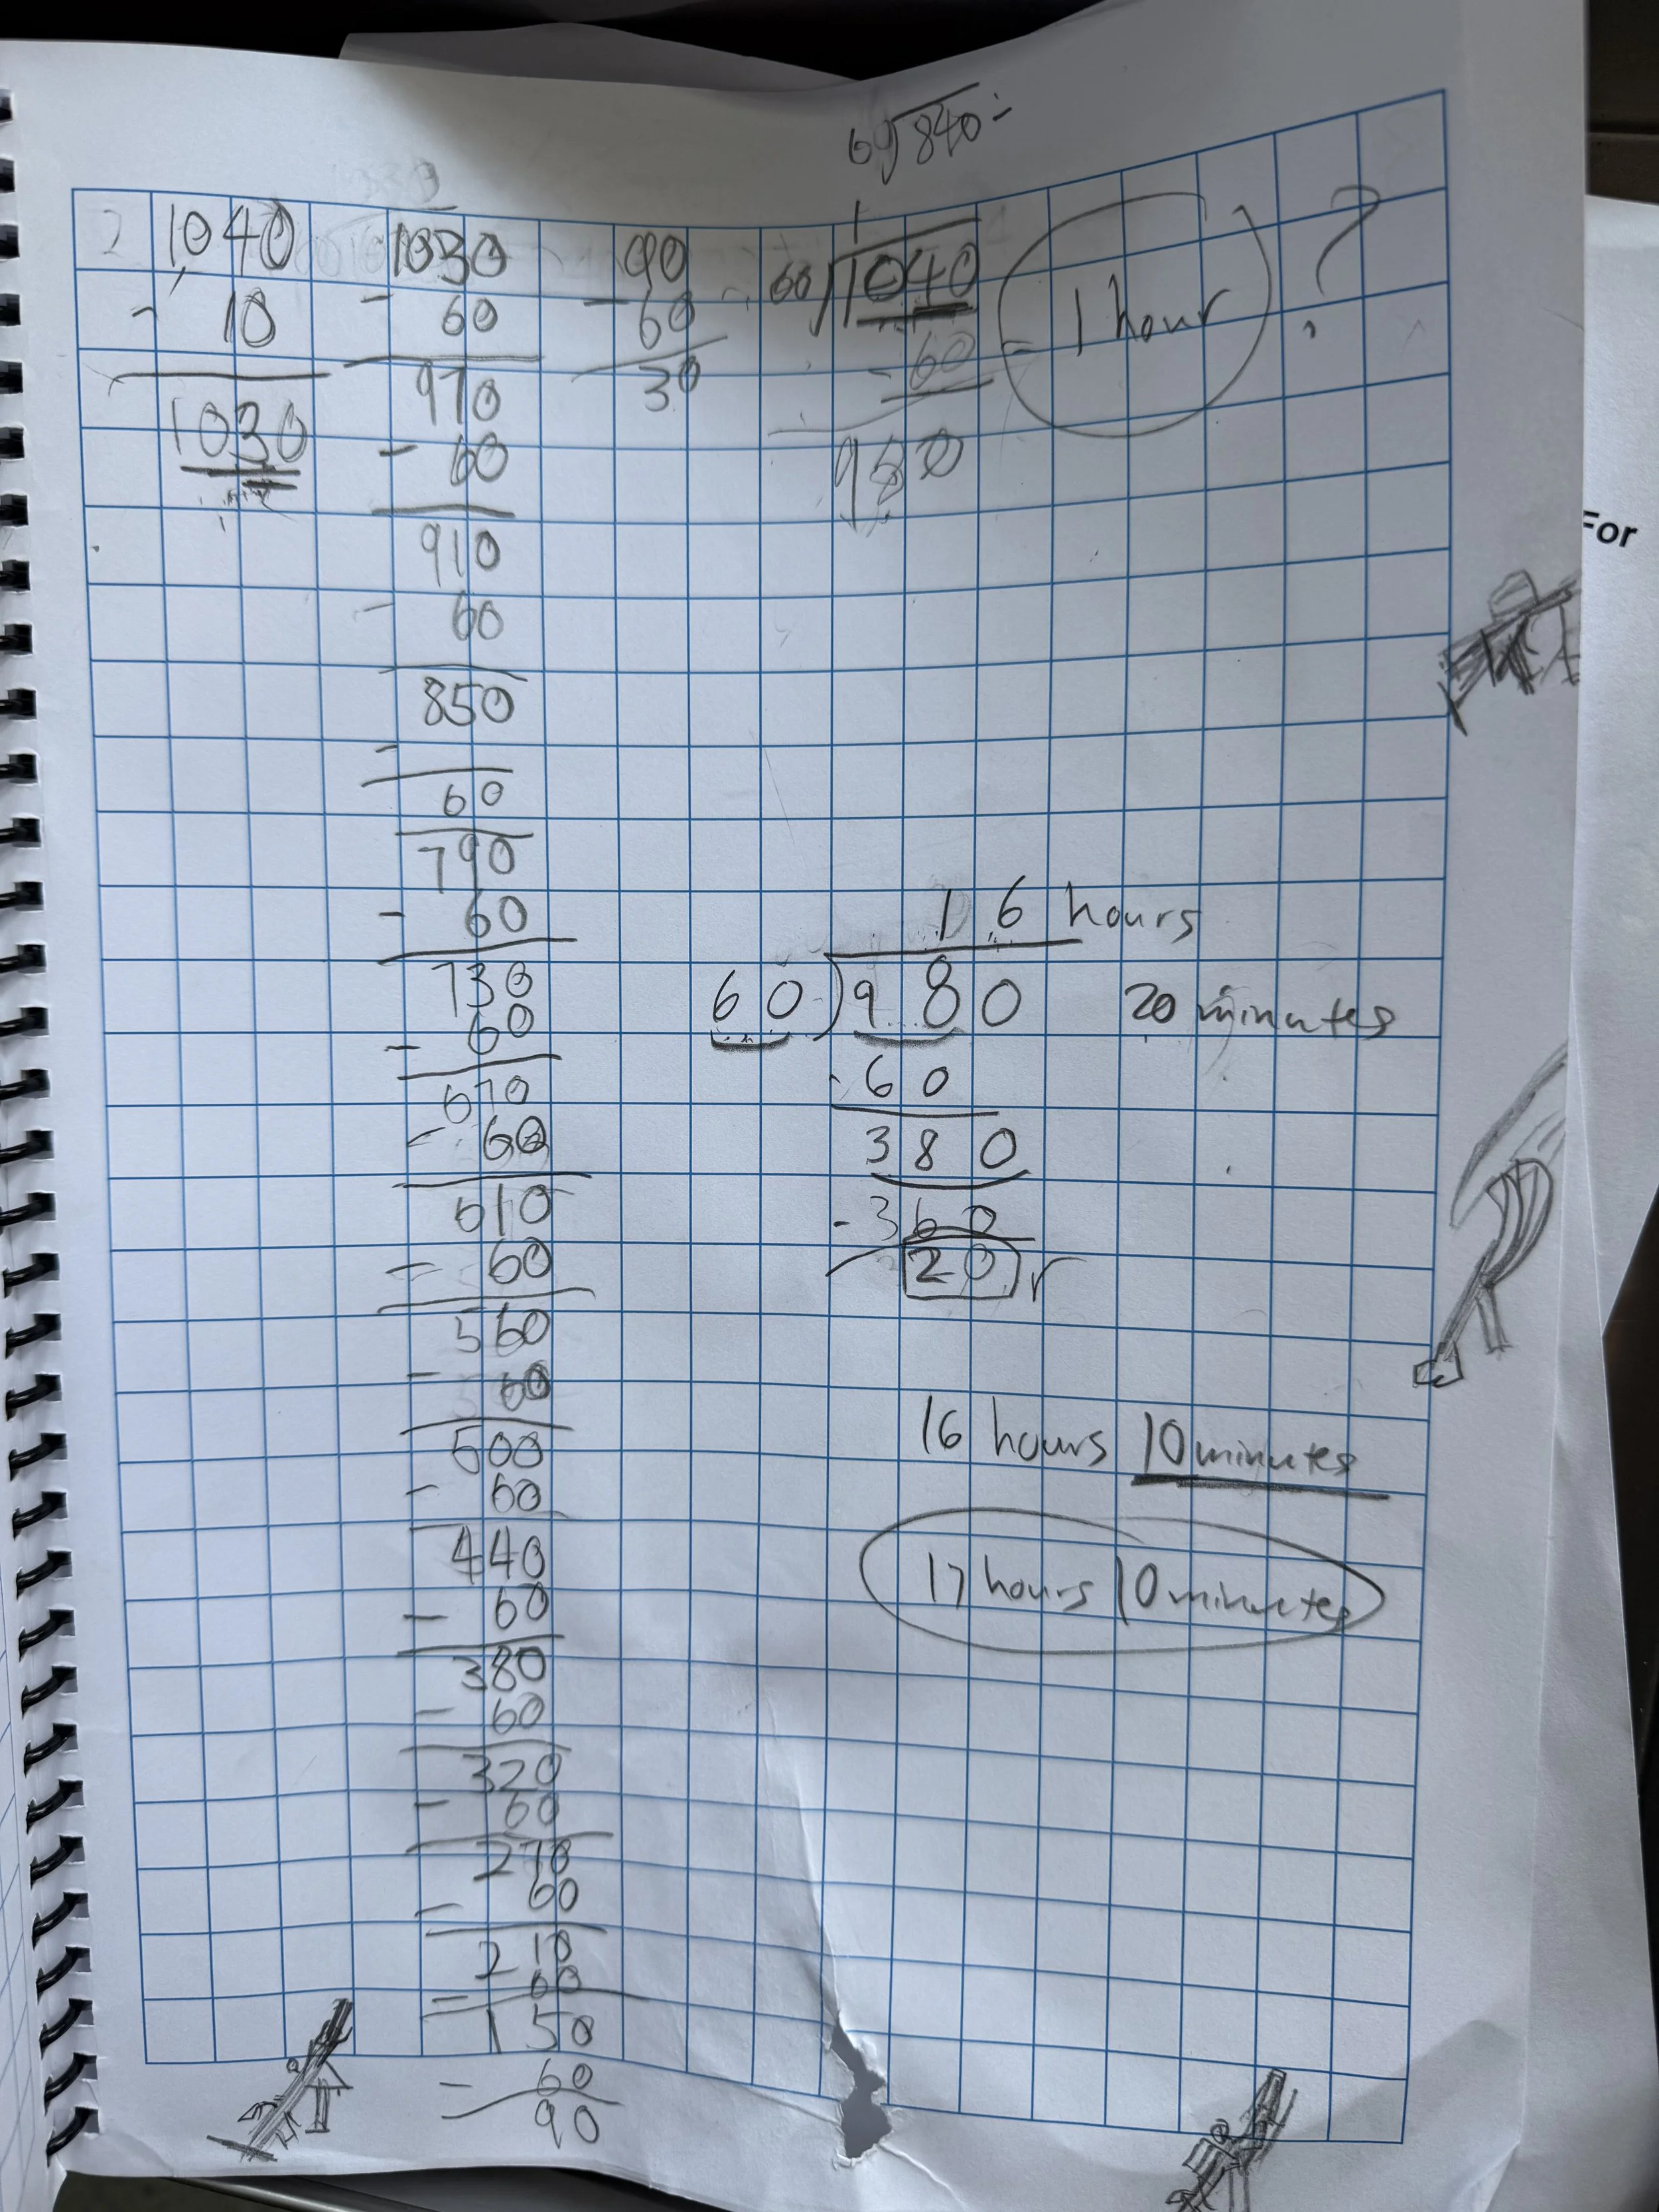 60)840 -
2
1040
- 10
1030
1030
- 60
970
- 60
910
- 60
850
-
60
790
- 60
730
- 60
670
- 60
610
- 60
560
- 60
500
- 60
440
- 60
380
- 60
320
- 60
270
- 60
210
- 60
150
- 60
90
90
- 60
30
1
60)1040
- 60 = 1 hour ?
980
16 hours
60)980 20 minutes
- 60
380
- 360
20 r
16 hours 10 minutes
17 hours 10 minutes
For